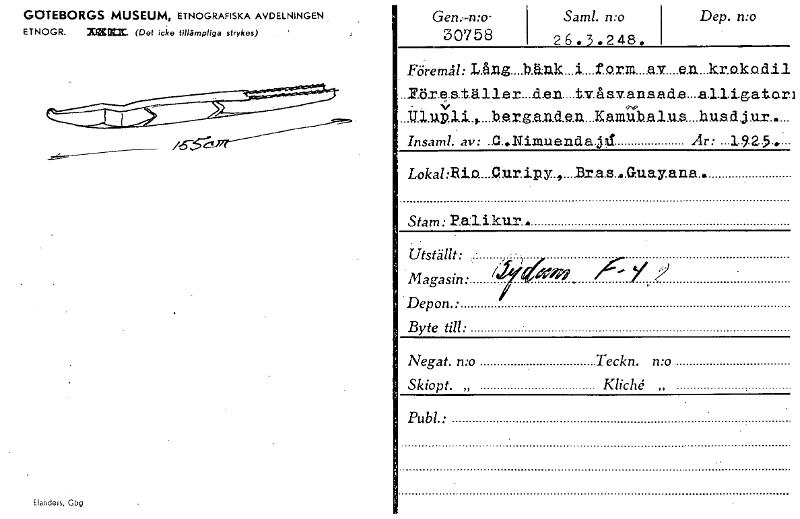 GÖTEBORGS MUSEUM, ETNOGRAFISKA AVDELNINGEN
ETNOGR. (Det icke tillämpliga strykes)
155cm
Elanders, Gbg
Gen.-n:o Saml. n:o Dep. n:o
30758 26.3.248.
Föremål: Lång bänk i form av en krokodil
Föreställer den tvåsvansade alligatorn
Ulupli, berganden Kamũbalus husdjur.
Insaml. av: C.Nimuendajú År: 1925.
Lokal: Rio Curipy, Bras.Guayana.
Stam: Palikur.
Utställt:
Magasin: F-4 ?
Depon.:
Byte till:
Negat. n:o Teckn. n:o
Skiopt. „ Kliché „
Publ.: